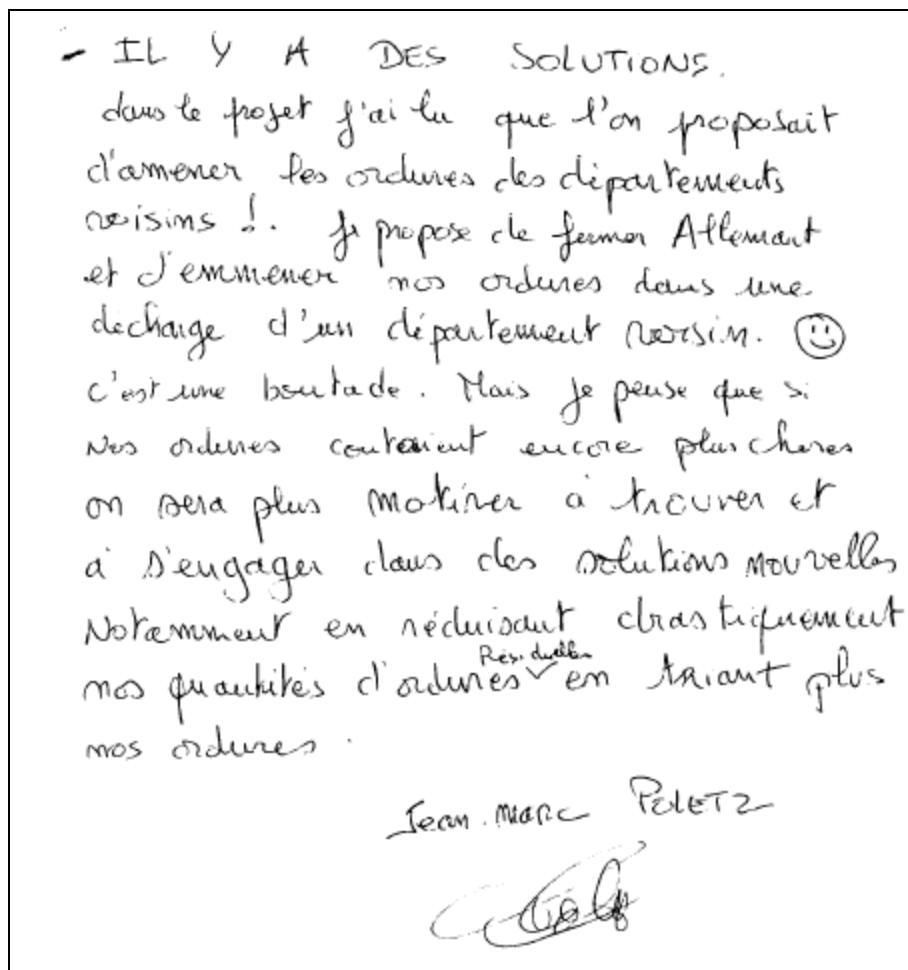 - IL Y A DES SOLUTIONS.
dans le projet j'ai lu que l'on proposait
d'amener les ordures des départements
voisins !. Je propose de fermer Allemant
et d'emmener nos ordures dans une
decharge d'un département voisin. ☺
c'est une boutade. Mais je pense que si
Nos ordures coutaient encore plus cheres
on sera plus motiver à trouver et
à s'engager dans des solutions nouvelles
Notamment en réduisant drastiquement
nos quantités d'ordures Résiduelles en triant plus
nos ordures.
Jean.Marc